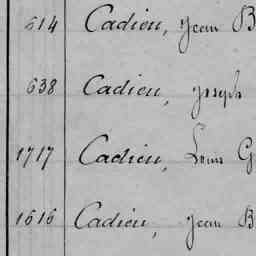 614 Cadieu, Jean B
638 Cadieu, Joseph
1717 Cadieu, Louis G
1616 Cadieu, Jean B